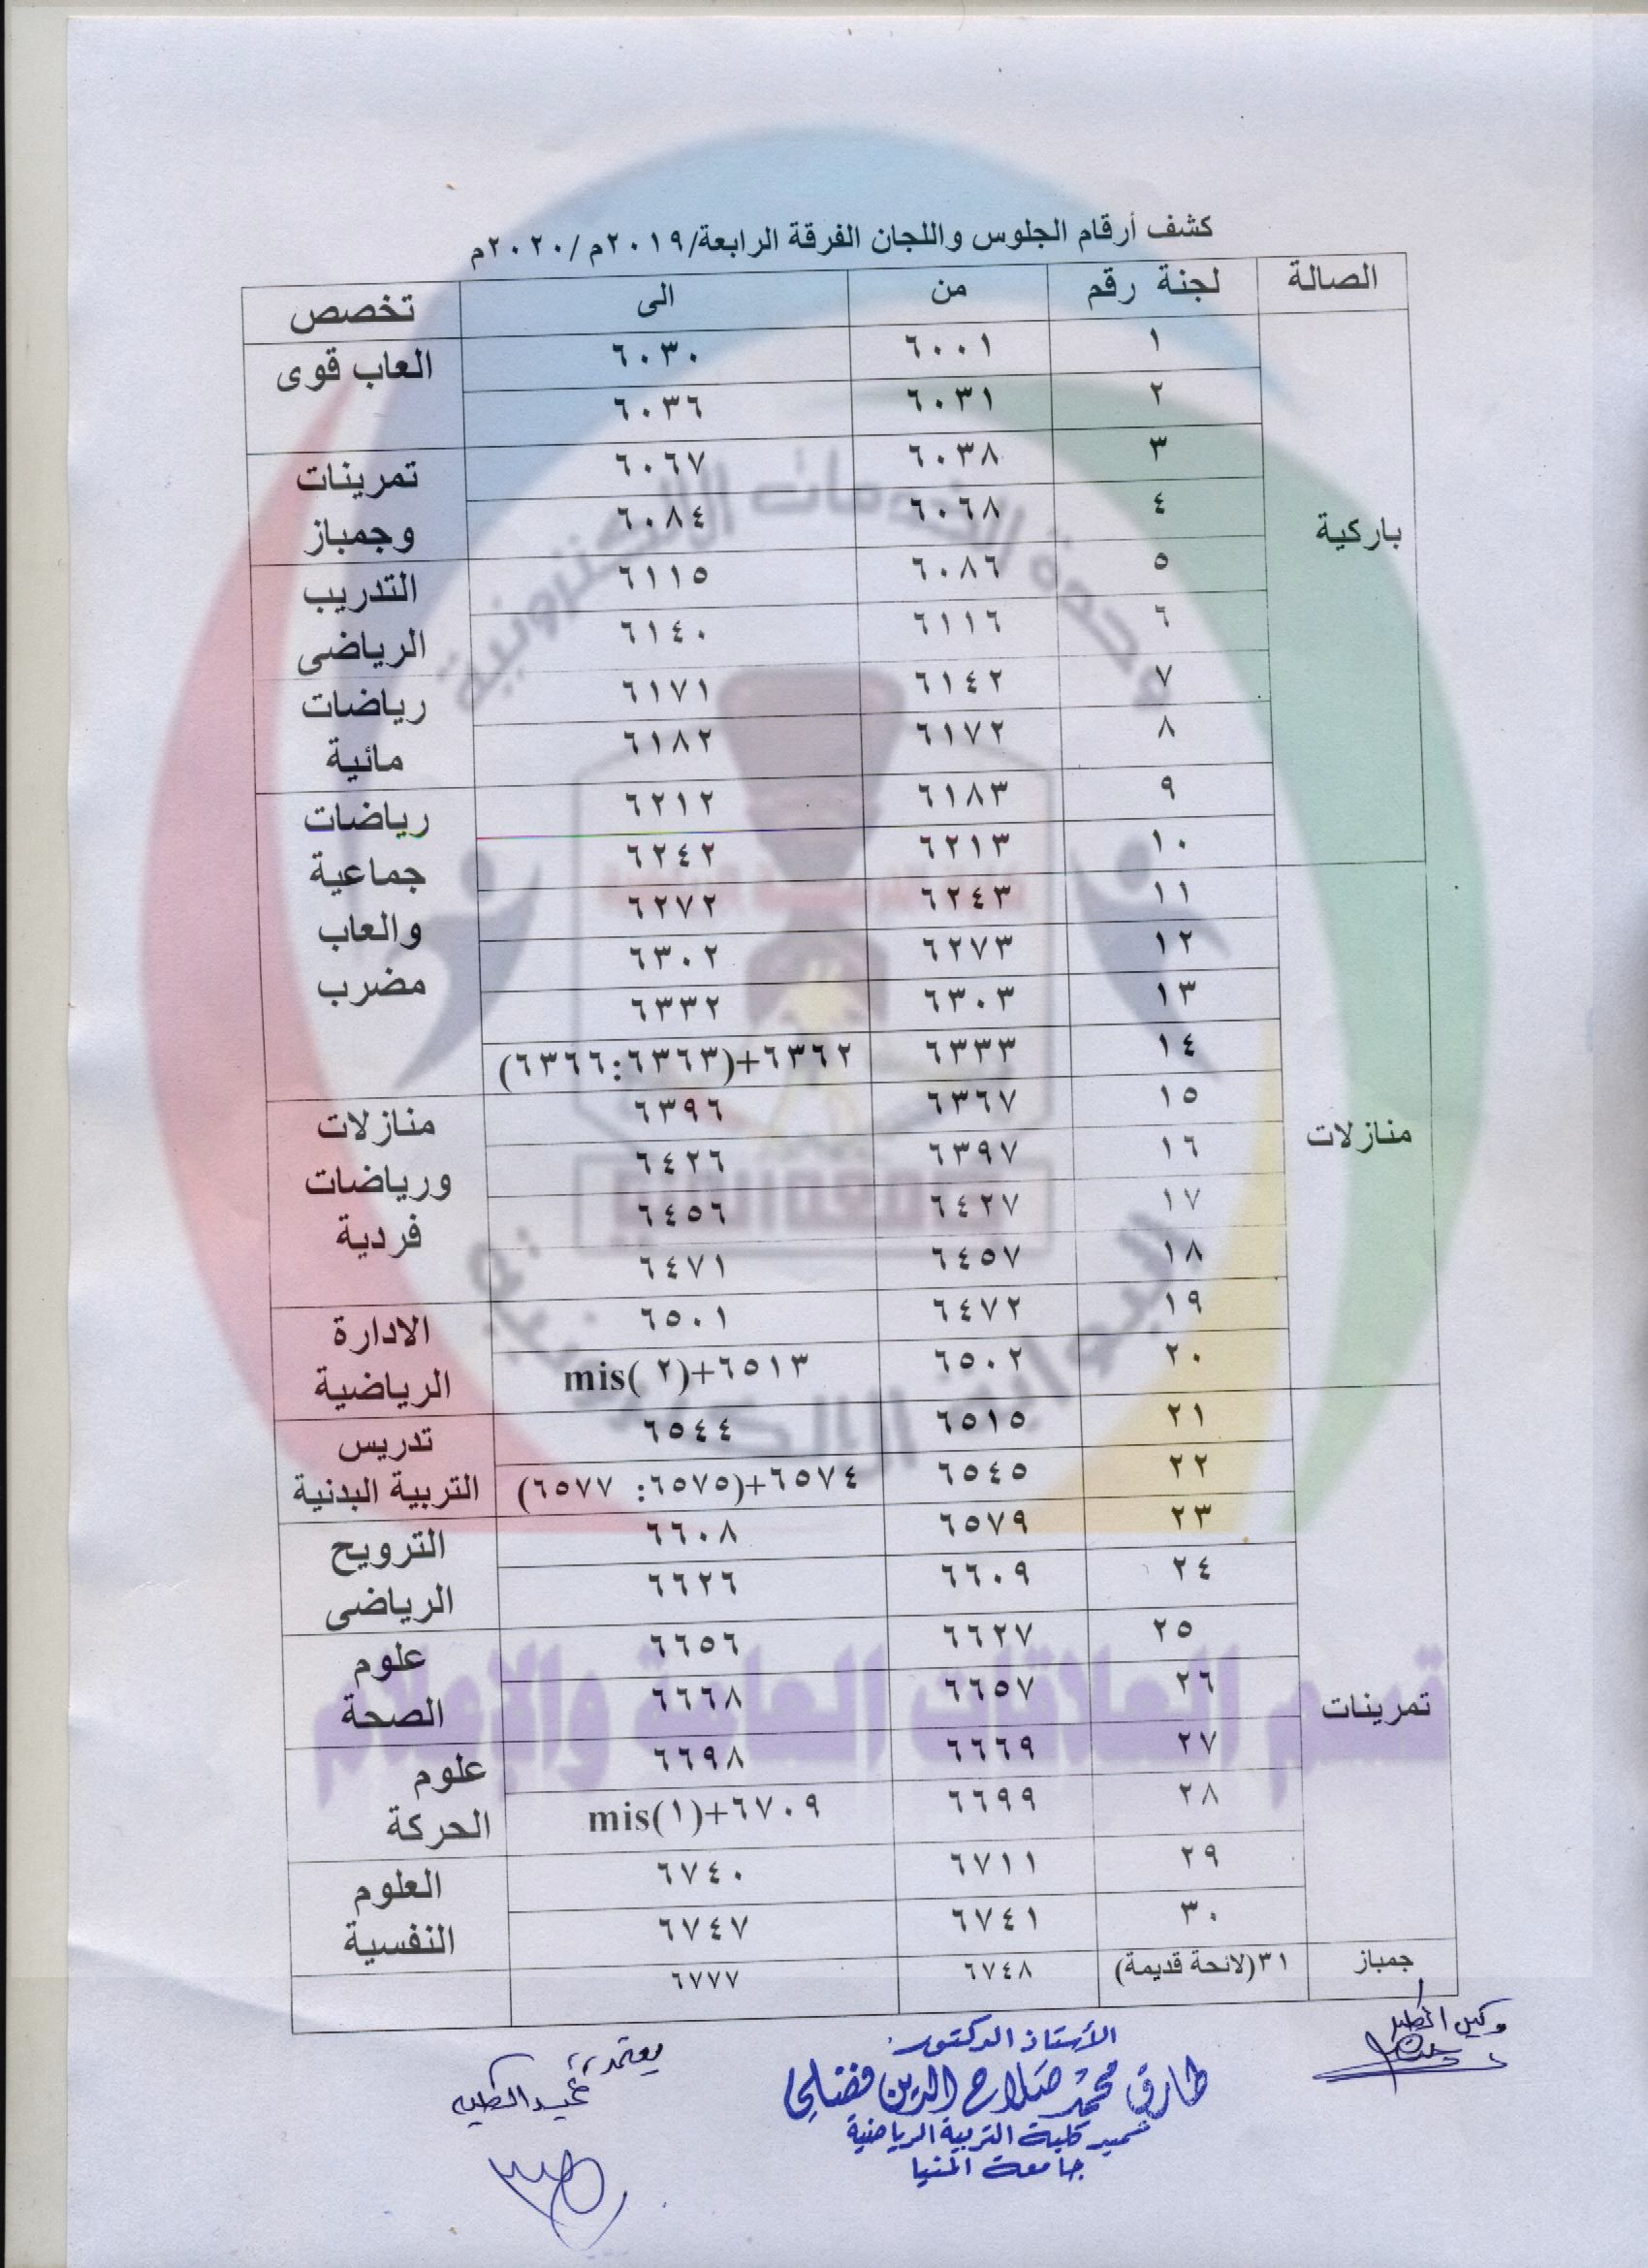 كشف أرقام الجلوس واللجان الفرقة الرابعة/٢٠١٩م /٢٠٢٠م
الصالة لجنة رقم من الى تخصص
باركية ١ ٦٠٠١ ٦٠٣٠ العاب قوى
٢ ٦٠٣١ ٦٠٣٦
٣ ٦٠٣٨ ٦٠٦٧ تمرينات
٤ ٦٠٦٨ ٦٠٨٤ وجمباز
٥ ٦٠٨٦ ٦١١٥ التدريب
٦ ٦١١٦ ٦١٤٠ الرياضى
٧ ٦١٤٢ ٦١٧١ رياضات
٨ ٦١٧٢ ٦١٨٢ مائية
٩ ٦١٨٣ ٦٢١٢ رياضات
١٠ ٦٢١٣ ٦٢٤٢ جماعية
منازلات ١١ ٦٢٤٣ ٦٢٧٢ والعاب
١٢ ٦٢٧٣ ٦٣٠٢ مضرب
١٣ ٦٣٠٣ ٦٣٣٢
١٤ ٦٣٣٣ ٦٣٦٢+(٦٣٦٣:٦٣٦٦)
١٥ ٦٣٦٧ ٦٣٩٦ منازلات
١٦ ٦٣٩٧ ٦٤٢٦ ورياضات
١٧ ٦٤٢٧ ٦٤٥٦ فردية
١٨ ٦٤٥٧ ٦٤٧١
١٩ ٦٤٧٢ ٦٥٠١ الادارة
٢٠ ٦٥٠٢ ٦٥١٣+(٢ )mis الرياضية
تمرينات ٢١ ٦٥١٥ ٦٥٤٤ تدريس
٢٢ ٦٥٤٥ ٦٥٧٤+(٦٥٧٥: ٦٥٧٧) التربية البدنية
٢٣ ٦٥٧٩ ٦٦٠٨ الترويح
٢٤ ٦٦٠٩ ٦٦٢٦ الرياضى
٢٥ ٦٦٢٧ ٦٦٥٦ علوم
٢٦ ٦٦٥٧ ٦٦٦٨ الصحة
٢٧ ٦٦٦٩ ٦٦٩٨ علوم
٢٨ ٦٦٩٩ ٦٧٠٩+(١)mis الحركة
٢٩ ٦٧١١ ٦٧٤٠ العلوم
٣٠ ٦٧٤١ ٦٧٤٧ النفسية
جمباز ٣١(لائحة قديمة) ٦٧٤٨ ٦٧٧٧
وحدة الخدمات الإلكترونية
البوابة الإلكترونية
جامعة المنيا
قسم العلاقات العامة والإعلام
وكيل الكلية
الأستاذ الدكتور
طارق محمد صلاح الدين فضلى
عميد كلية التربية الرياضية
جامعة المنيا
يعتمد، عميد الكلية